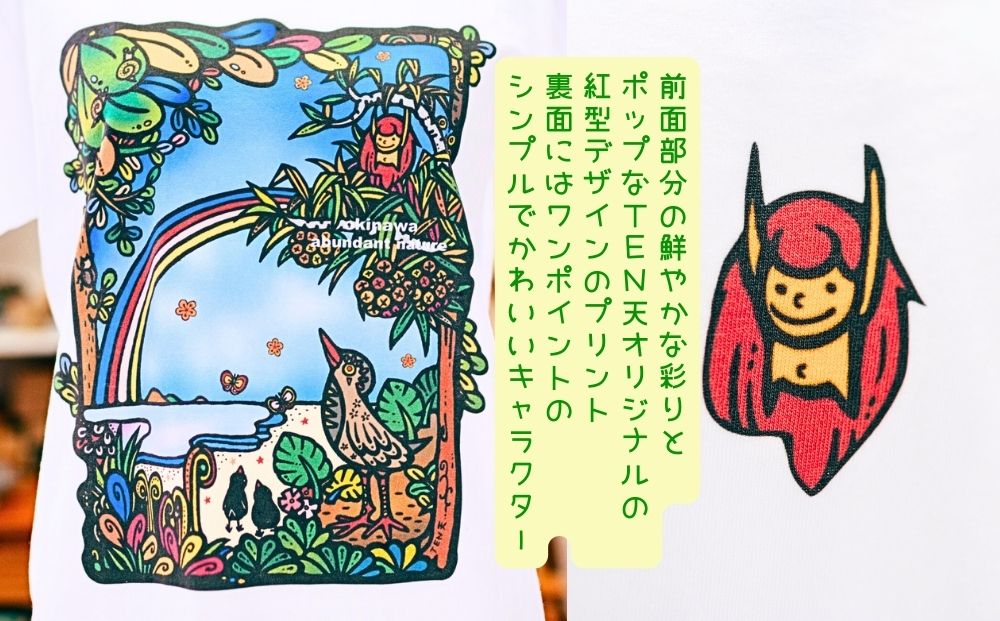 前面部分の鮮やかな彩りと
ポップなTEN天オリジナルの
紅型デザインのプリント
裏面にはワンポイントの
シンプルでかわいいキャラクター
okinawa
abundant nature
TEN天